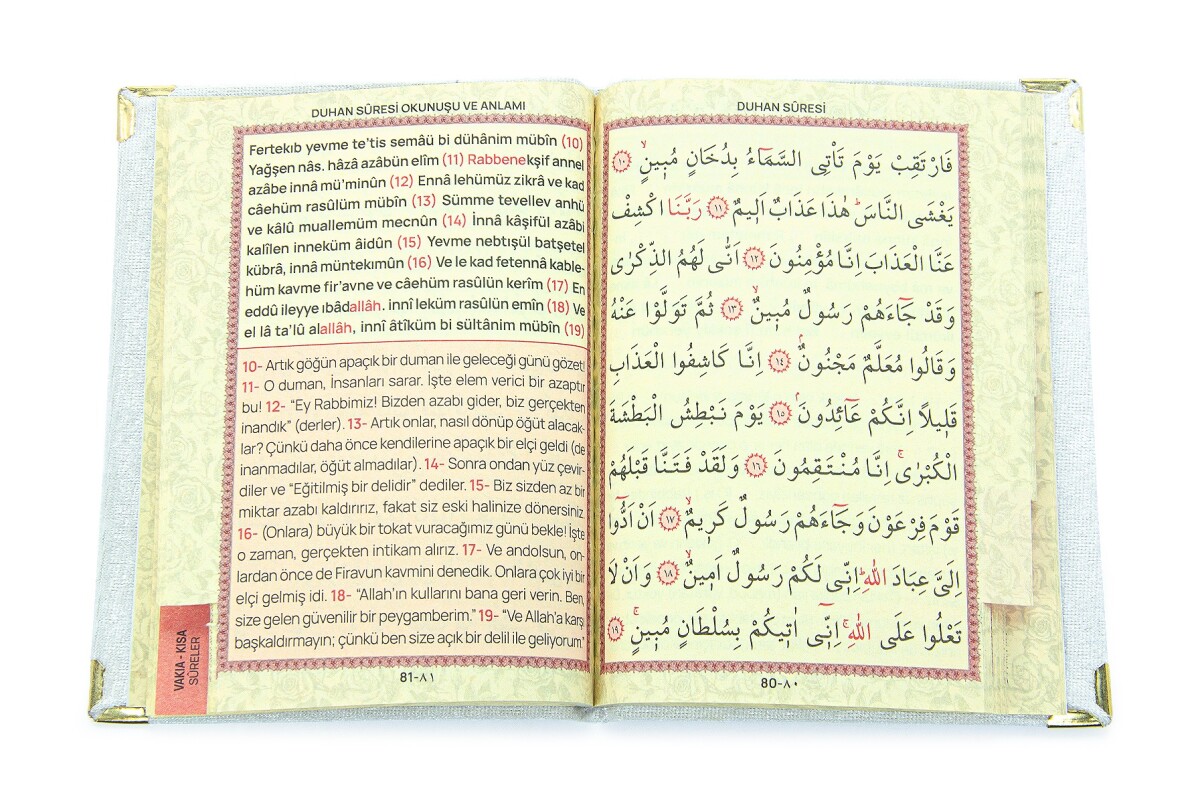 DUHAN SÛRESİ OKUNUŞU VE ANLAMI
Fertekıb yevme te'tis semâü bi dühânim mübîn (10)
Yağşen nâs. hâzâ azâbün elîm (11) Rabbenekşif annel
azâbe innâ mü'minûn (12) Ennâ lehümüz zikrâ ve kad
câehüm rasûlüm mübîn (13) Sümme tevellev anhü
ve kâlû muallemüm mecnûn (14) İnnâ kâşifül azâbi
kalîlen inneküm âidûn (15) Yevme nebtışül batşetel
kübrâ, innâ müntekımûn (16) Ve le kad fetennâ kable-
hüm kavme fir'avne ve câehüm rasûlün kerîm (17) En
eddû ileyye ıbâdallâh. innî leküm rasûlün emîn (18) Ve
el lâ ta'lû alallâh, innî âtîküm bi sültânim mübîn (19)
10- Artık göğün apaçık bir duman ile geleceği günü gözet!
11- O duman, İnsanları sarar. İşte elem verici bir azaptır
bu! 12- "Ey Rabbimiz! Bizden azabı gider, biz gerçekten
inandık" (derler). 13- Artık onlar, nasıl dönüp öğüt alacak-
lar? Çünkü daha önce kendilerine apaçık bir elçi geldi (de
inanmadılar, öğüt almadılar). 14- Sonra ondan yüz çevir-
diler ve "Eğitilmiş bir delidir" dediler. 15- Biz sizden az bir
miktar azabı kaldırırız, fakat siz eski halinize dönersiniz.
16- (Onlara) büyük bir tokat vuracağımız günü bekle! İşte
o zaman, gerçekten intikam alırız. 17- Ve andolsun, on-
lardan önce de Firavun kavmini denedik. Onlara çok iyi bir
elçi gelmiş idi. 18- "Allah'ın kullarını bana geri verin. Ben,
size gelen güvenilir bir peygamberim." 19- "Ve Allah'a karşı
başkaldırmayın; çünkü ben size açık bir delil ile geliyorum"
81-٨١
VAKIA - KISA
SÛRELER
DUHAN SÛRESİ
فَارْتَقِبْ يَوْمَ تَأْتِى السَّمَاءُ بِدُخَانٍ مُبِينٍۙ ﴿١٠﴾
يَغْشَى النَّاسَۜ هٰذَا عَذَابٌ اَلِيمٌ ﴿١١﴾ رَبَّنَا اكْشِفْ
عَنَّا الْعَذَابَ اِنَّا مُؤْمِنُونَ ﴿١٢﴾ اَنّٰى لَهُمُ الذِّكْرٰى
وَقَدْ جَاءَهُمْ رَسُولٌ مُبِينٌۙ ﴿١٣﴾ ثُمَّ تَوَلَّوْا عَنْهُ
وَقَالُوا مُعَلَّمٌ مَجْنُونٌۢ ﴿١٤﴾ اِنَّا كَاشِفُوا الْعَذَابِ
قَلِيلًا اِنَّكُمْ عَائِدُونَۢ ﴿١٥﴾ يَوْمَ نَبْطِشُ الْبَطْشَةَ
الْكُبْرٰىۚ اِنَّا مُنْتَقِمُونَ ﴿١٦﴾ وَلَقَدْ فَتَنَّا قَبْلَهُمْ
قَوْمَ فِرْعَوْنَ وَجَاءَهُمْ رَسُولٌ كَرِيمٌۙ ﴿١٧﴾ اَنْ اَدُّوا
اِلَىَّ عِبَادَ اللّٰهِۜ اِنِّى لَكُمْ رَسُولٌ اَمِينٌۙ ﴿١٨﴾ وَاَنْ لَا
تَعْلُوا عَلَى اللّٰهِۚ اِنِّى اٰتِيكُمْ بِسُلْطَانٍ مُبِينٍۚ ﴿١٩﴾
80-٨٠